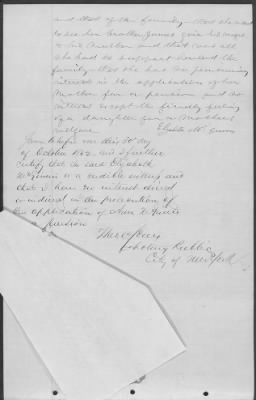 and that of the family. That she used
to see her brother James give his wages
to his Mother and that was all
she had to support herself and
family. That she has no pecuniary
interest in the application of her
Mother for a pension and no
interest except the friendly feeling
of a daughter for a Mother's
welfare Elizabeth McGinnis
Sworn before me this 30 day
of October 186 and I further
certify that the said Elizabeth
McGinnis is a credible witness and
that I have no interest direct
or indirect in the prosecution of
the application of Ann
pension
Notary Public
City of New York